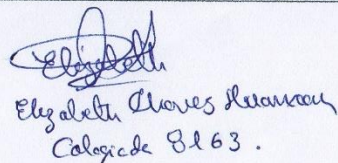 Elizabeth
Elizabeth Chaves
Colegiada 8163.